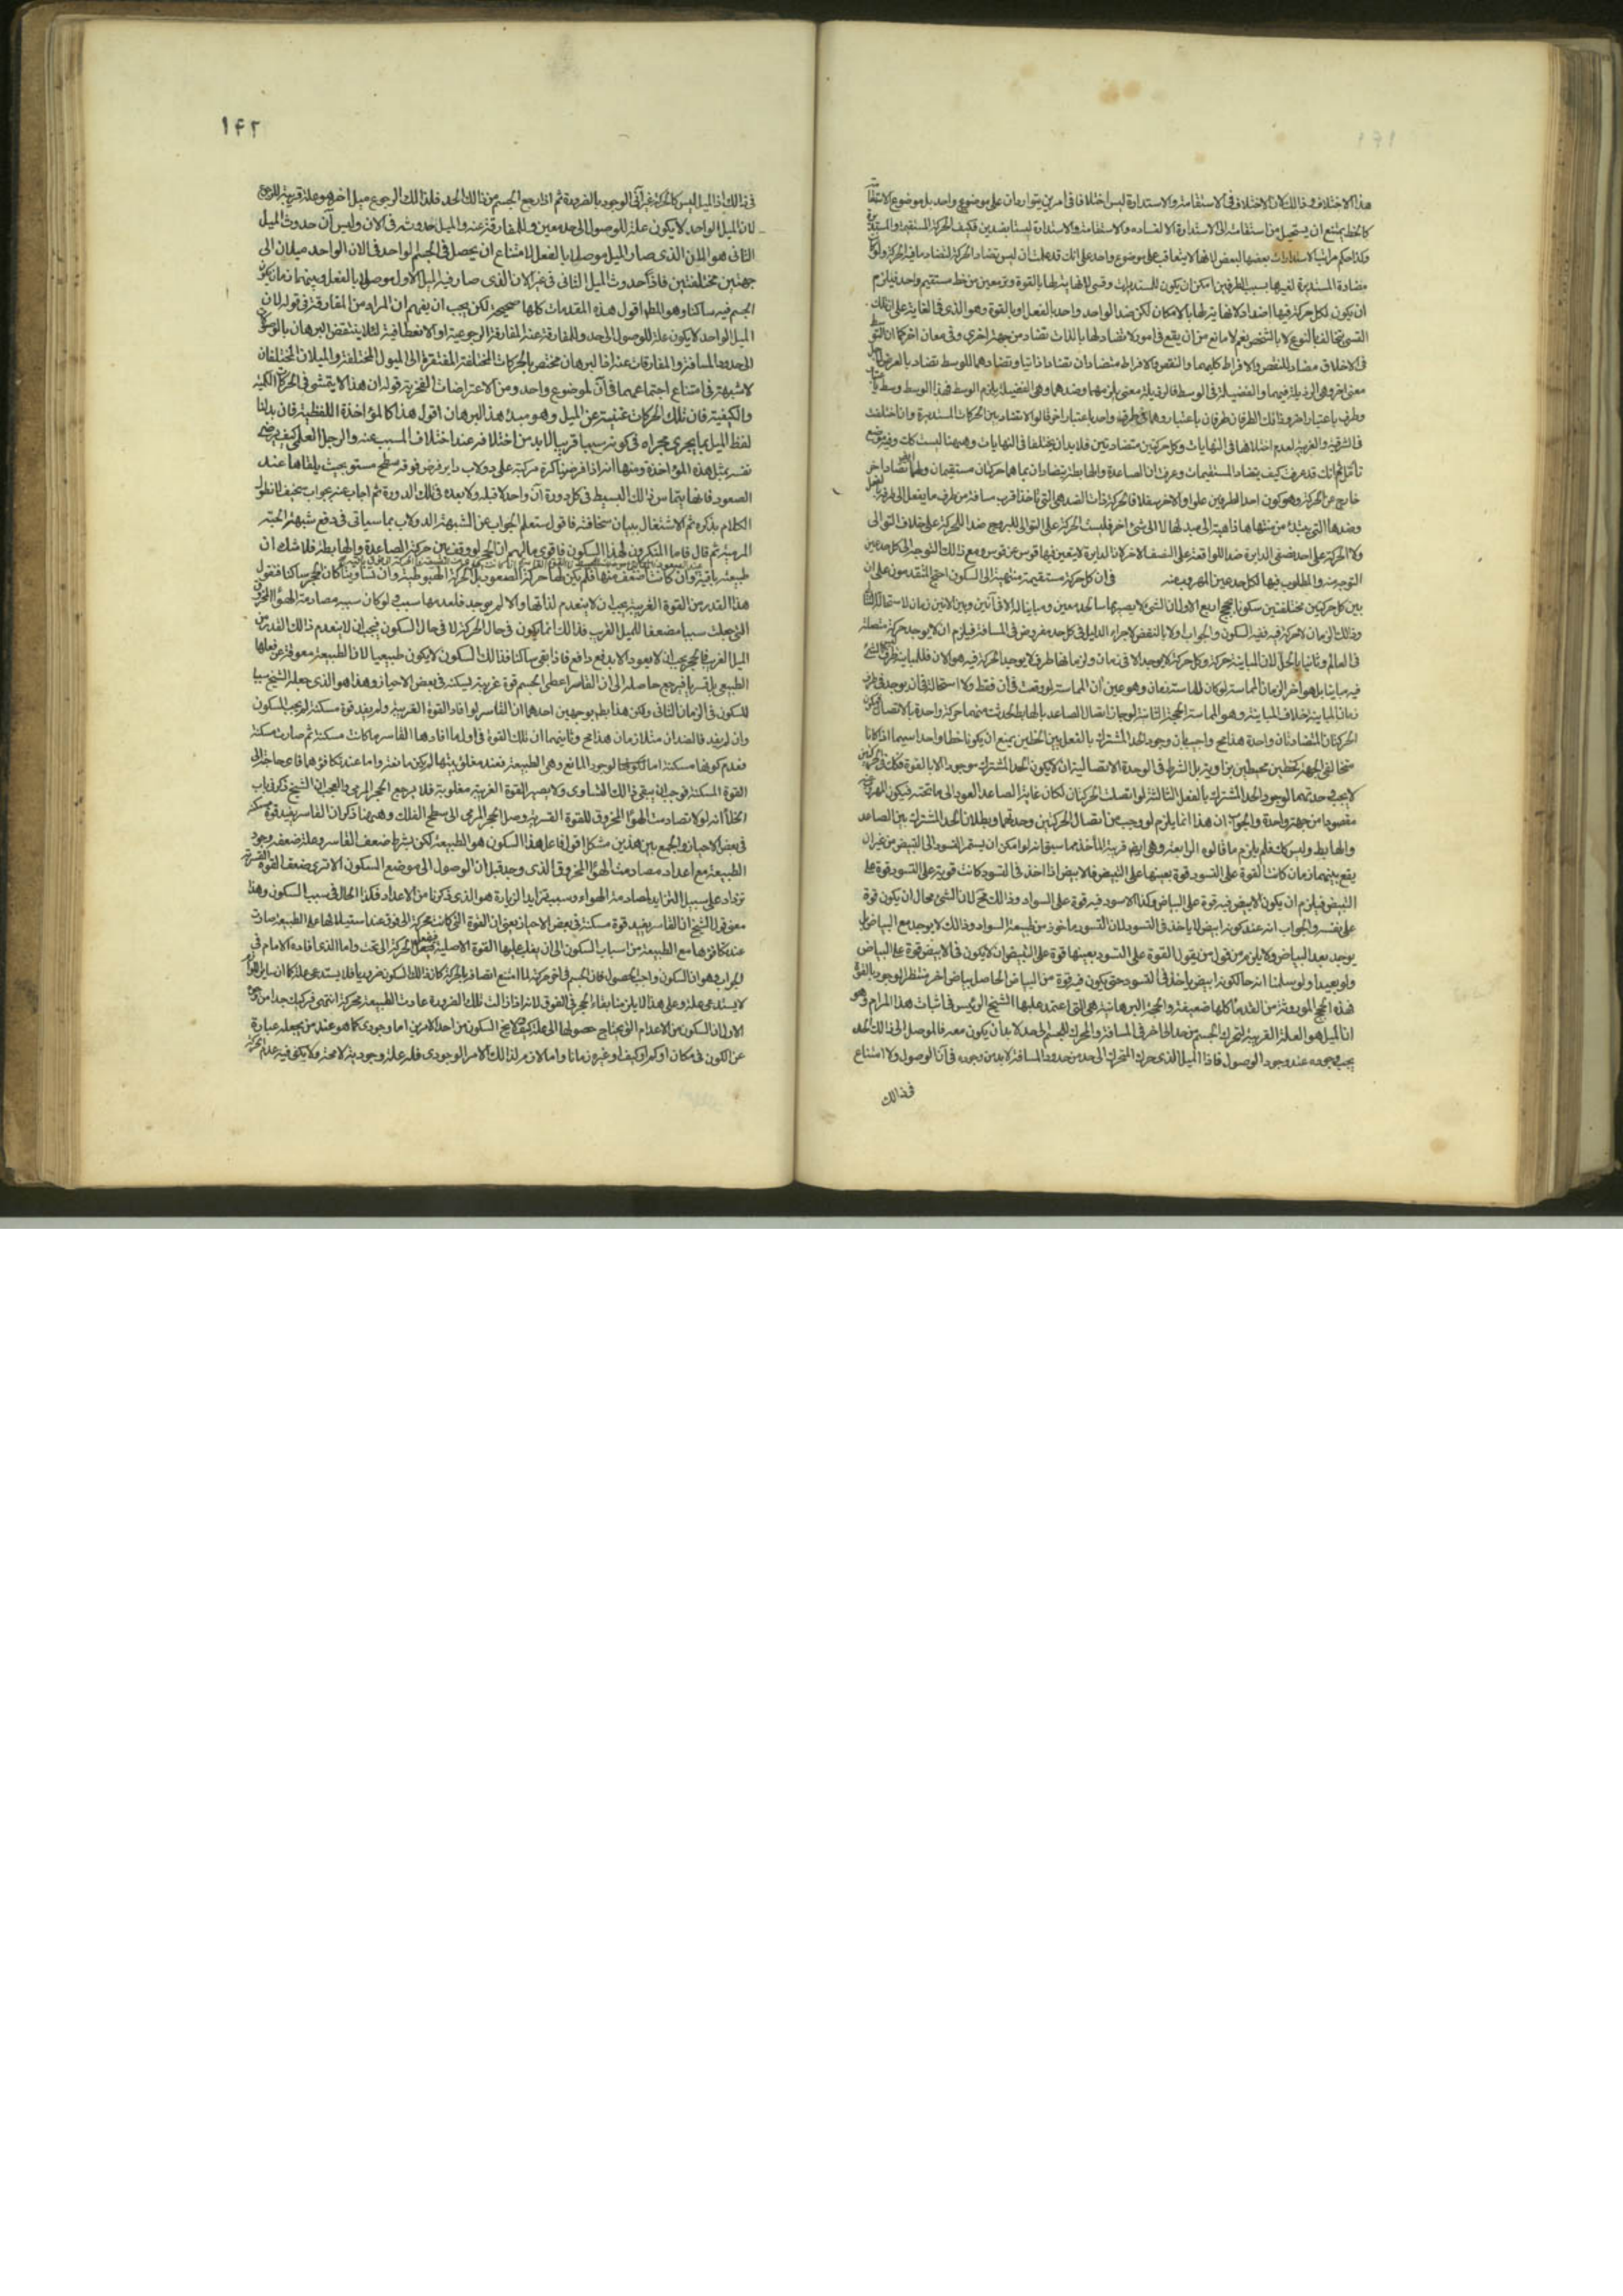 هذا الاختلاف وذالك لان الاختلاف فى الاستقامة والاستدارة ليس اختلافا فى امرين يتواردان على موضوع واحد بل موضوع الاستقامة
كالخط يمتنع ان يستحيل من استقامته الى الاستدارة الا لفساده والاستقامة والاستدارة ليستا بضدين فكيف الحركة المستقيمة والمستديرة
وكذا حكم مراتب الاستدارات بعضها لبعض لانها لا يتعاقب على موضوع واحد على انك قد علمت ان ليس تضاد الحركة لتضاد ما فيه الحركة
مضادة المستديرة لغيرها بسبب الطرفين امكن ان يكون للمستديرات وقسى لانهاية لها بالقوة وترمعين من خط مستقيم واحد فيلزم
ان يكون لكل حركة فيها اضداد لا نهاية لها بالامكان لكن ضد الواحد واحد بالفعل او بالقوة وهو الذى فى الغاية على ان تلك
القسى تخالف بالنوع لا بالشخص نعم لا مانع من ان يقع فى امور لا تضاد لها بالذات تضاد من جهة اخرى وفى معان اخر كما ان التوسط
فى الاخلاق مضاد للنقص والافراط كليهما والنقص والافراط متضادان تضادا ذاتيا وتضادهما للوسط تضاد بالعرض
معنى اخر وهى الرذيلة فيهما والفضيلة فى الوسط فالرذيلة معنى يلزمهما وضدهما وهى الفضيلة يلزم الوسط فهذا الوسط وسط
وطرف باعتبار اخر وذانك الطرفان طرفان باعتبار وهما فى طرف واحد باعتبار اخر قالوا لا تضاد بين الحركات المستديرة وان اختلفت
فى الشرقية والغربية لعدم اختلافها فى النهايات وكل حركتين متضادتين فلا بد ان يختلفا فى النهايات وهيهنا ليست كك وفيه موضع
تأمل ثم انك قد عرفت كيف يتضاد المستقيمات وعرفت ان الصاعدة والهابطة يتضادان بما هما حركتان مستقيمتان ولهما تضاد اخر
خارج عن الحركة وهو كون احد الطرفين علوا والاخر سفلا فالحركة ذات الضد هى التى ياخذ اقرب مسافة من طرف بالفعل الى طرف بالفعل
وضدها التى يبتدئ من منتهاها ذاهبة الى مبدئها لا الى شئ اخر فليست الحركة على التوالى للبروج ضدا للحركة على خلاف التوالى
ولا الحركة على احد نصفى الدايرة ضدا للواقعة على النصف الاخر لان الدايرة لا يتعين فيها قوس عن قوس ومع ذلك التوجه الى كل حد عين
التوجه منه والمطلوب فيها لكل حد عين المهروب عنه فى ان كل حركة مستقيمة منتهية الى السكون احتج المتقدمون على ان
بين كل حركتين مختلفتين سكونا بحجج اربع الاولى ان الشئ لا يصير مماسا لحد معين ومباينا له الا فى آنين وبين الانين زمان لاستحالة
وذلك الزمان لا حركة فيه ففيه السكون والجواب اولا بالنقض لاجراء الدليل فى كل حد مفروض فى المسافة فيلزم ان لا يوجد حركة متصلة
فى العالم وثانيا بالحل لان المباينة حركة وكل حركة لا يوجد الا فى زمان ولزمانها طرف لا يوجد الحركة فيه هو الان فللمباينة طرف ليس الشئ
فيه مباينا بل هو اخر الزمان المماسة لو كان للمماسة زمان وهو عين آن المماسة لو وقعت فى آن فقط ولا استحالة فى ان يوجد فى طرف
زمان المباينة خلاف المباينة وهو المماسة الحجة الثانية لو جاز اتصال الصاعد بالهابط لحدثت منهما حركة واحدة بالاتصال فيكون
الحركتان المتضادتان واحدة هذا مح واجيب بان وجود الحد المشترك بالفعل بين الخطين يمنع ان يكونا خطا واحدا سيما اذا كانا
متخالفى الجهة كخطين محيطين بزاوية بل الشرط فى الوحدة الاتصالية ان لا يكون الحد المشترك موجودا الا بالقوة فكذلك فى الحركتين
لا يجب وحدتهما لوجود الحد المشترك بالفعل الثالثة لو اتصلت الحركتان لكان غاية الصاعد العود الى ما تحته فيكون المهروب عنه
مقصودا من جهة واحدة والجواب ان هذا انما يلزم لو وجب من اتصال الحركتين وحدتهما وبطلان الحد المشترك بين الصاعد
والهابط وليس كك فلم يلزم ما قالوه الرابعة وهى ايضا قريبة المأخذ مما سبق انه لو امكن ان يستمر التسود الى التبيض من غير ان
يقع بينهما زمان كانت القوة على التسود قوة بعينها على التبيض فالابيض اذا اخذ فى التسود كانت قويته على التسود قوة على
التبيض فيلزم ان يكون الابيض فيه قوة على البياض وكذا الاسود فيه قوة على السواد وذالك مح لان الشئ محال ان يكون قوة
على نفسه والجواب انه عند كونه ابيض لا ياخذ فى التسود لان التسود ماخوذ من طبيعة السواد وذالك لا يوجد مع البياض بل
يوجد بعد البياض ولا يلزم من قول من يقول القوة على التسود بعينها قوة على التبيض ان لا يكون فى الابيض قوة على البياض
ولو بعيدا ولو سلمنا انه حال كونه ابيض ياخذ فى التسود حتى يكون فيه قوة من البياض الحاصل بياض اخر منتظر الوجود بالقوة
فهذه الحجج الموروثة من القدماء كلها ضعيفة والحجة البرهانية هى التى اعتمد عليها الشيخ الرئيس فى اثبات هذا المرام وهو
ان الميل هو العلة القريبة لتحرك الجسم من حد الى اخر فى المسافة والمحرك للجسم الى حد لا بد ان يكون معه فالموصل الى ذالك الحد
يجب وجوده عند وجود الوصول فاذا الميل الذى حرك المتحرك الى حد من حدود المسافة لا بد من وجوده فى آن الوصول ولا امتناع
فى ذالك
۱۴۲
فى ذالك اذ الميل ليس كالحركة غير آنى الوجود بالضرورة ثم اذا رجع الجسم من ذالك الحد فلذالك الرجوع ميل اخر هو علة قريبة للرجوع
لان الميل الواحد لا يكون علة للوصول الى حد معين وللمفارقة عنه والميل حدوثه فى الان وليس آن حدوث الميل
الثانى هو الان الذى صار الميل موصلا بالفعل لامتناع ان يحصل فى الجسم الواحد فى الان الواحد ميلان الى
جهتين مختلفتين فاذا حدوث الميل الثانى فى غير الان الذى صار فيه الميل الاول موصلا بالفعل وبينهما زمان يكون
الجسم فيه ساكنا وهو المط اقول هذه المقدمات كلها صحيحة لكن يجب ان يفهم ان المراد من المفارقة فى قوله لان
الميل الواحد لا يكون علة للوصول الى حد وللمفارقة عنه المفارقة الرجوعية او الانعطافية لئلا ينتقض البرهان بالوصول
الى حدود المسافة والمفارقات عنه اذ البرهان مختص بالحركات المختلفة المفتقرة الى الميول المختلفة والميلان المختلفان
لا شبهة فى امتناع اجتماعهما فى آن لموضوع واحد ومن الاعتراضات الفخرية قوله ان هذا لا يتمشى فى الحركات الكمية
والكيفية فان تلك الحركات غنية عن الميل وهو مبدء هذا البرهان اقول هذا كالمؤاخذة اللفظية فان بدلنا
لفظ الميل بما يجرى مجراه فى كونه سببا قريبا لا بد من اختلافه عند اختلاف المسبب عنه والرجل العلمى كيف يرضى
نفسه بمثل هذه المؤاخذة ومنها انه اذا فرضنا كرة مركبة على دولاب داير فرض فوقه سطح مستو بحيث يلقاها عند
الصعود فانها يتماس ذالك البسيط فى كل دورة آن واحد لا قبله ولا بعده فى تلك الدورة ثم اجاب عنه بجواب سخيف لا نطول
الكلام بذكره ثم الاشتغال ببيان سخافته فاقول ستعلم الجواب عن الشبهة الدولاب بما سياتى فى دفع شبهة الحبة
المرمية ثم قال فاما المنكرون لهذا السكون فاقوى ما لهم ان الحجر لو وقف بين حركته الصاعدة والهابطة فلا شك ان
طبيعته باقية وان كانت اضعف منها فلم يكن لها حركة الصعود بل الحركة الهبوطية وان تساويتا كان الحجر ساكنا فنقول
هذا القدر من القوة الغريبة يجب ان لا ينعدم لذاتها والا لم يوجد فلعدمها سبب ولو كان سببه مصادمة الهواء المخروق
التى جعلت سببا مضعفا للميل الغريب فذالك انما يكون فى حال الحركة لا فى حال السكون فيجب ان لا ينعدم ذالك القدر من
الميل الغريب فالحجر يجب ان لا يعود الا بدفع دافع فاذا بقى ساكنا فذالك السكون لا يكون طبيعيا لان الطبيعة معوقة عن فعلها
الطبيعى بل قسريا فيرجع حاصله الى ان القاسر اعطى الجسم قوة غريبة يسكنه فى بعض الاحياز وهذا هو الذى جعله الشيخ سببا
للسكون فى الزمان الثانى ولكن هذا بط بوجهين احدهما ان القاسر لو افاد القوة الغريبة ولم يفد قوة مسكنة لم يجب السكون
وان لم يفد فالضدان متلازمان هذا مح وثانيهما ان تلك القوة فى اول ما افادها القاسر ما كانت مسكنة ثم صارت مسكنة
فعدم كونها مسكنة اما لكونها لوجود المانع وهى الطبيعة فعند مغلوبيتها لم يكن مانعة واما عند تكافؤهما فاى حاجة الى
القوة المسكنة فوجب ان يبقى ذالك التساوى ولا يصير القوة الغريبة مغلوبة فلا يرجع الحجر المرمى والعجب ان الشيخ ذكر فى باب
الخلأ انه لولا تصادمت الهواء المخروق للقوة القسرية وصل الحجر المرمى الى سطح الفلك وهيهنا ذكر ان القاسر يفيد قوة مسكنة
فى بعض الاحياز والجمع بين هذين مشكل اقول فاعل هذا السكون هو الطبيعة لكن بشرط ضعف القاسر وعلة ضعفه وجود
الطبيعة مع اعداد مصادمت الهواء المخروق الذى وجد قبل ان الوصول الى موضع السكون الا ترى ضعف القوة القسرية
تزداد على سبيل التزايد لمصادمة الهواء وسبب تزايد الزيادة هو الذى ذكرنا من الاعداد فكذا الحال فى سبب السكون وهذا
معنى قول الشيخ ان القاسر يفيد قوة مسكنة فى بعض الاحياز بمعنى ان القوة التى كانت محركة الى فوق عند استيلائها على الطبيعة صارت
عند تكافؤها مع الطبيعة من اسباب السكون الى ان يغلب عليها القوة الاصلية فيفعل الحركة الى تحت واما الذى افاده الامام فى
الجواب وهو ان السكون واجب الحصول فان الجسم فى اخر حركته لما امتنع اتصافه بالحركة كان ذالك السكون ضروريا فلا يستدعى علة كما ان سائل
لا يستدعى علة وعلى هذا لا يلزمنا بقاء الحجر فى الفوق لانه اذا زالت تلك الضرورة عادت الطبيعة محركة انتهى فركيك جدا من وجوه
الاول ان السكون من الاعدام التى يحتاج حصولها الى علة كيف ولا يخ السكون من احد الامرين اما وجودى كما هو عند من يجعله عبارة
عن الكون فى مكان او كم او كيف او غيره زمانا واما لازم لذالك الامر الوجودى فله علة وجودية لا محة ولا يكفى فيه عدم الحركة